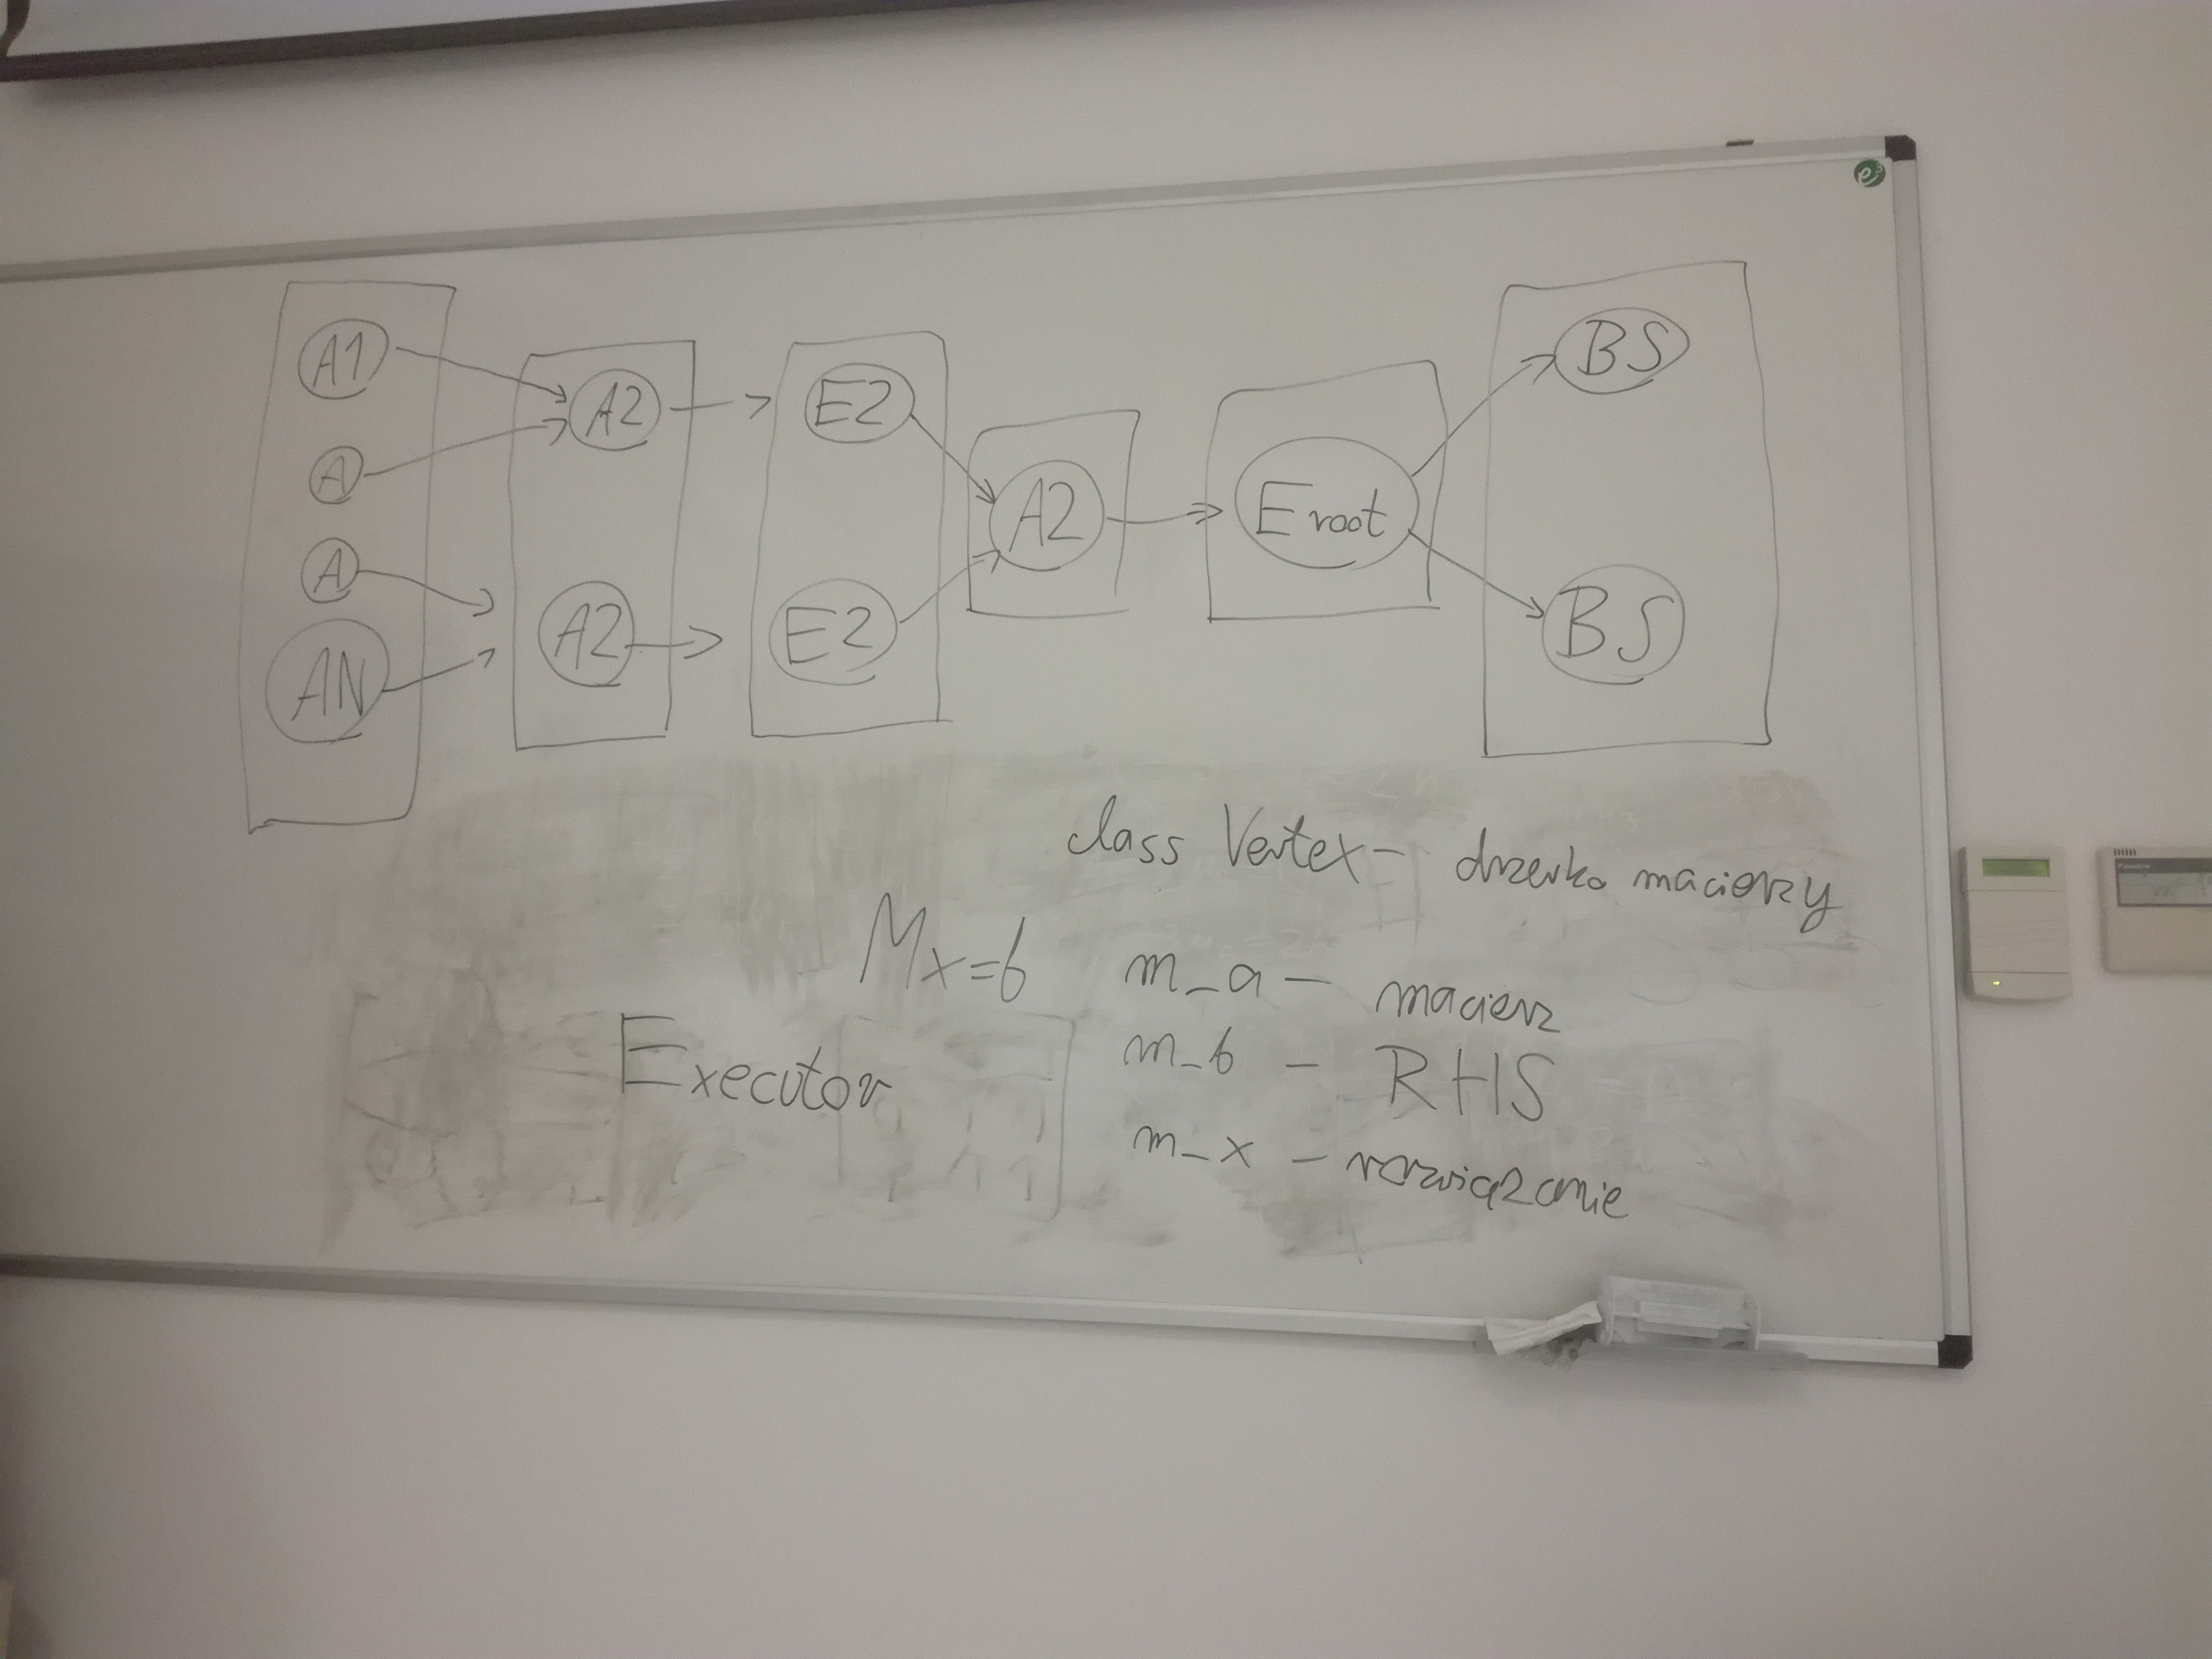 A1
A
A
AN
A2
A2
E2
E2
A2
E root
BS
BS
class Vertex - drzewko macierzy
Mx=b
m_a - macierz
m_b - RHS
m_x - rozwiązanie
Executor